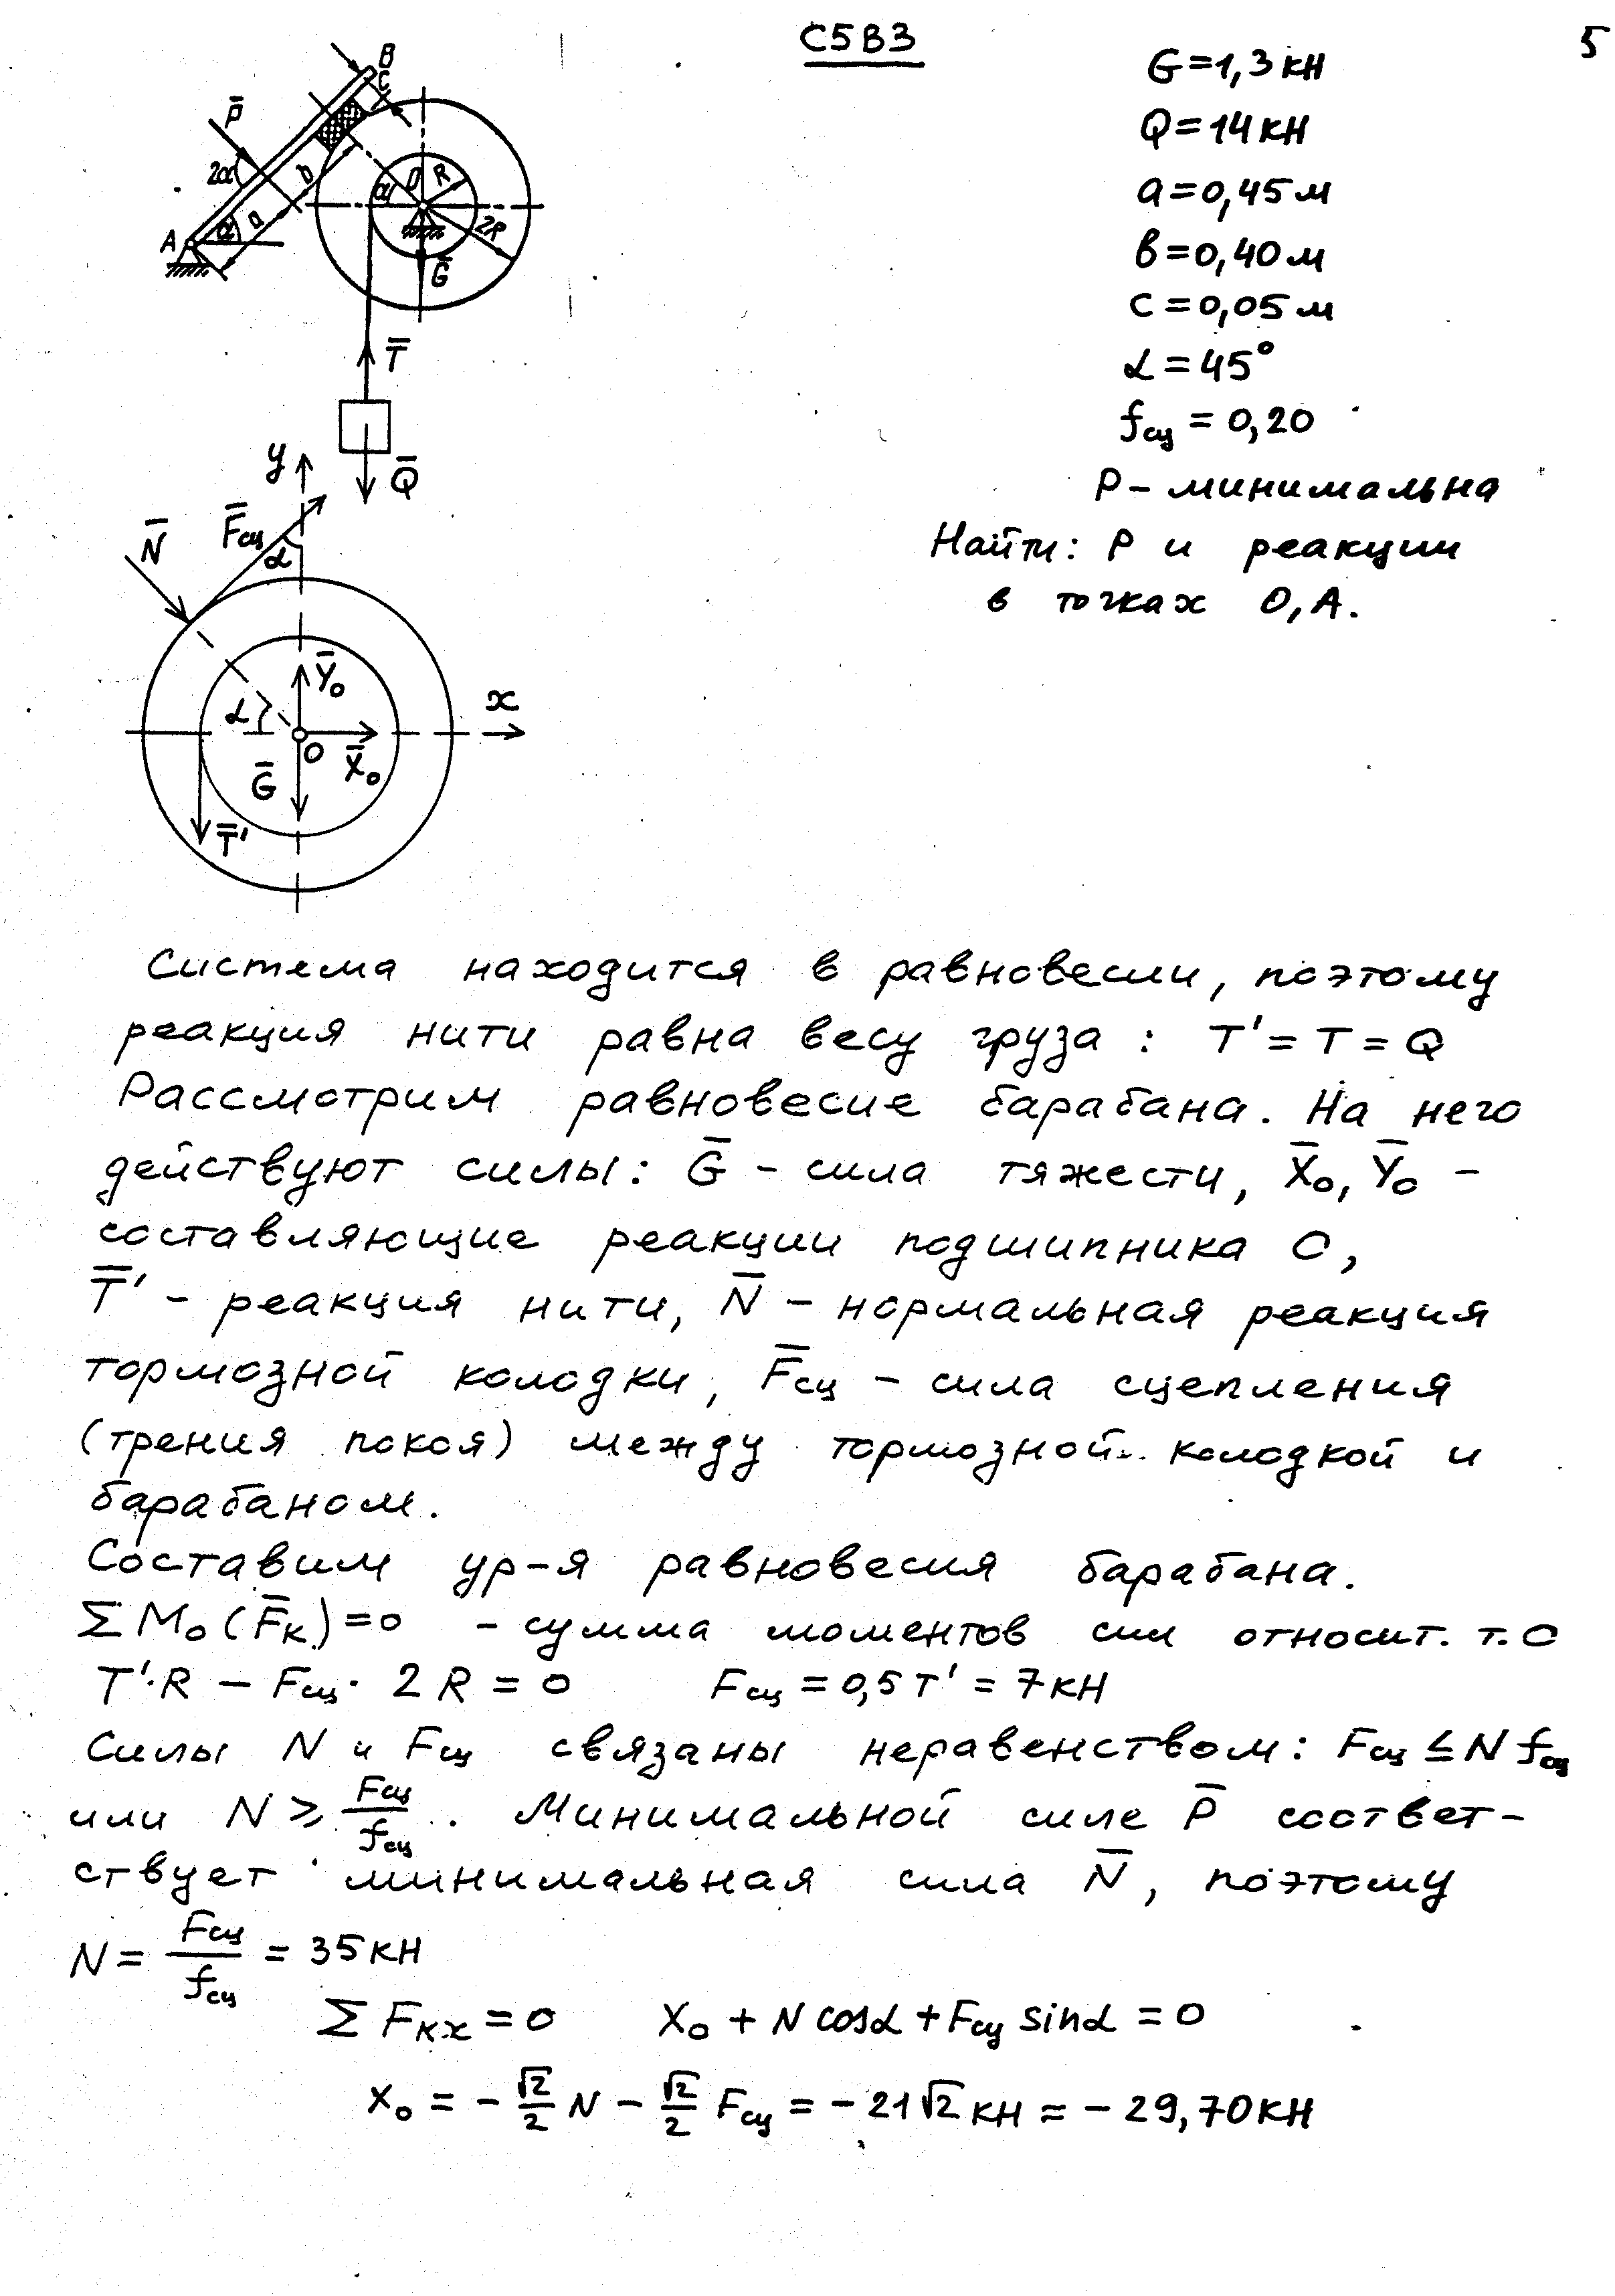 С5В3
5
G=1,3 кН
Q=14 кН
a=0,45 м
в=0,40 м
c=0,05 м
α=45°
fсц = 0,20
P - минимальна
Найти: P и реакции
в точках O, A.
B
C
P̄
2α
b
a
α
A
α
O
R
2R
Ḡ
T̄
Q̄
y
N̄
F̄сц
α
Ȳo
x
α
O
X̄o
Ḡ
T̄'
Система находится в равновесии, поэтому
реакция нити равна весу груза : T' = T = Q
Рассмотрим равновесие барабана. На него
действуют силы: Ḡ - сила тяжести, X̄o, Ȳo -
составляющие реакции подшипника O,
T̄' - реакция нити, N̄ - нормальная реакция
тормозной колодки, F̄сц - сила сцепления
(трения покоя) между тормозной колодкой и
барабаном.
Составим ур-я равновесия барабана.
Σ Mo (F̄к) = 0 - сумма моментов сил относит. т. O
T'·R - Fсц · 2R = 0 Fсц = 0,5 T' = 7 кН
Силы N и Fсц связаны неравенством: Fсц ≤ N fсц
или N ≥ Fсц/fсц . Минимальной силе P̄ соответ-
ствует минимальная сила N̄, поэтому
N = Fсц/fсц = 35 кН
Σ Fкx = 0 Xo + N cosα + Fсц sinα = 0
Xo = - √2/2 N - √2/2 Fсц = - 21√2 кН ≈ - 29,70 кН